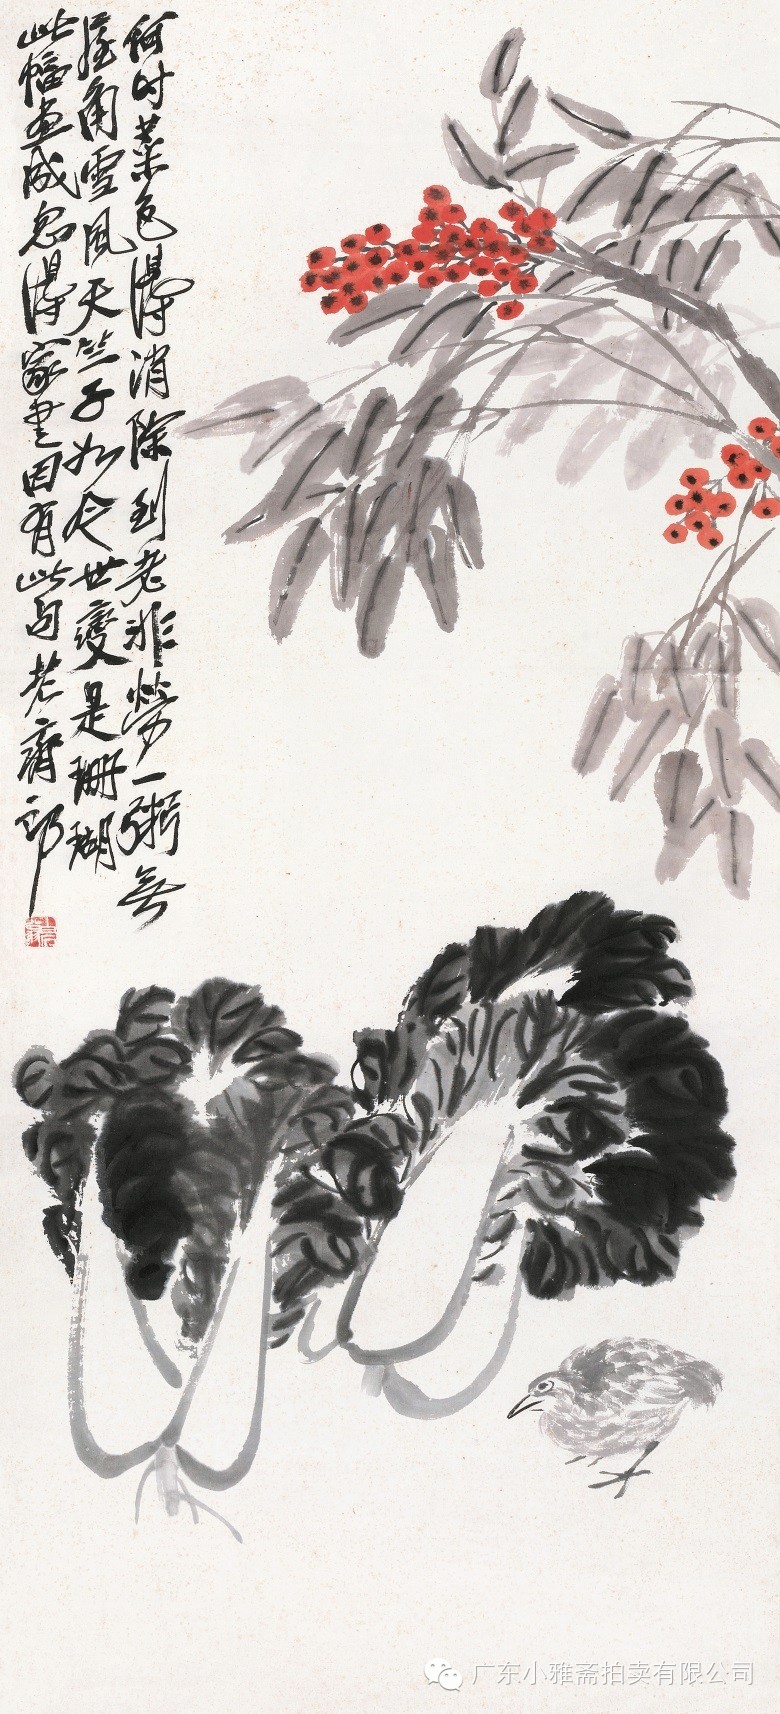 何时菜色得消除到老非劳一粥无
屋角雪风天竺子如今世变是珊瑚
此幅画成忽得家书因有此句老齐郎
广东小雅斋拍卖有限公司